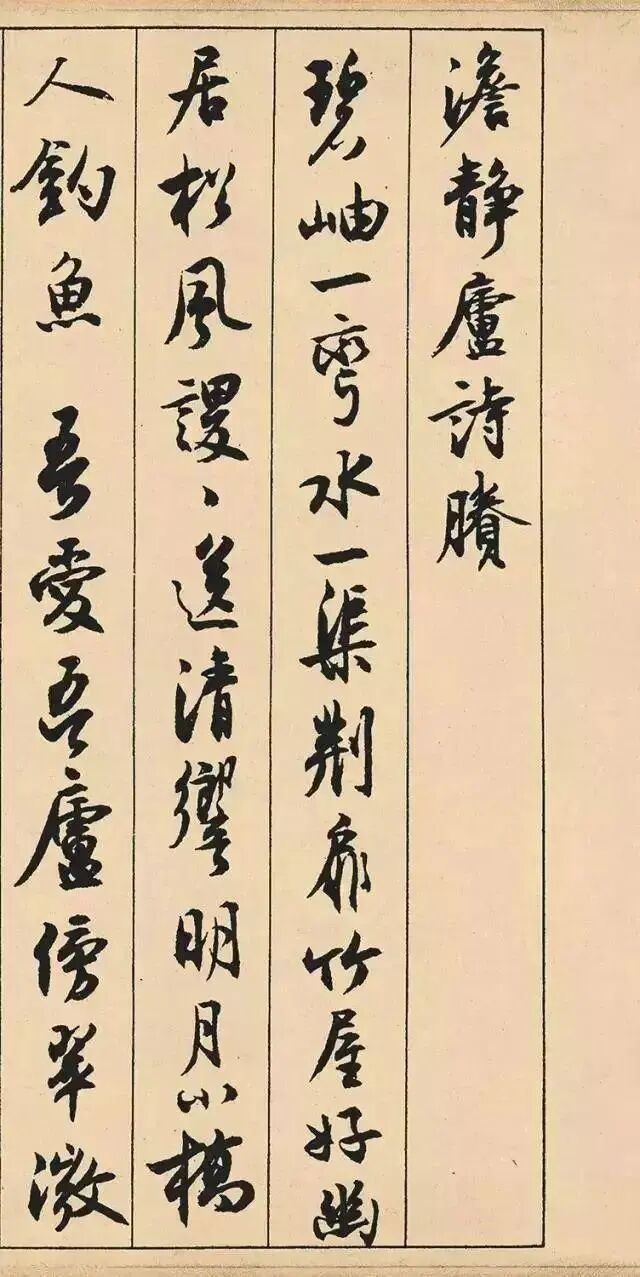 澹靜廬詩賸
碧岫一彎水一渠荊扉竹屋好幽
居松風謖〻送清響明月小橋
人釣魚 吾愛吾廬傍翠微